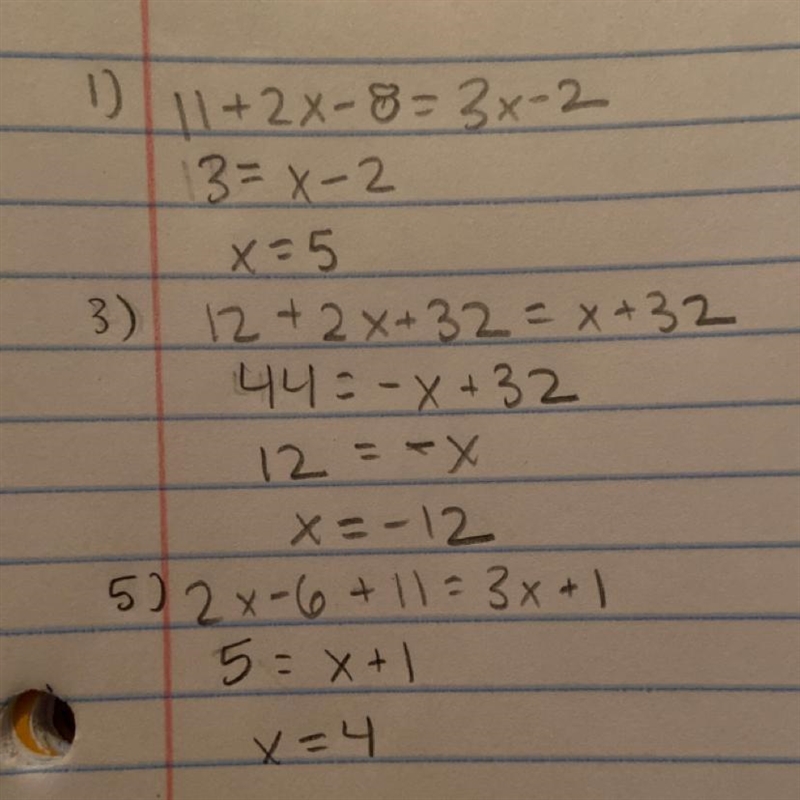 1) 11+2x-8=3x-2
3=x-2
x=5
3) 12+2x+32=x+32
44=-x+32
12=-x
x=-12
5) 2x-6+11=3x+1
5=x+1
x=4